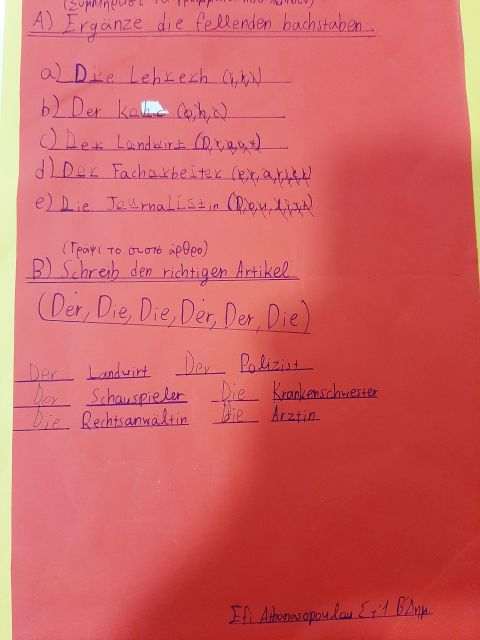 A) Ergänze die fellenden bachstaben.
a) Die Lehrerh (i,r,r)
b) Der
c) Der Landwirt (D,r,a,t)
d) Der Facharbeiter
e) Die Journalistin
(Γράψε το σωστό άρθρο)
B) Schreib den richtigen Artikel
(Der, Die, Die, Der, Der, Die)
Der Landwirt Der Polizist
Der Schauspieler Die Krankenschwester
Die Rechtsanwältin Die Ärztin
Efi Athanasopoulou Στ'1